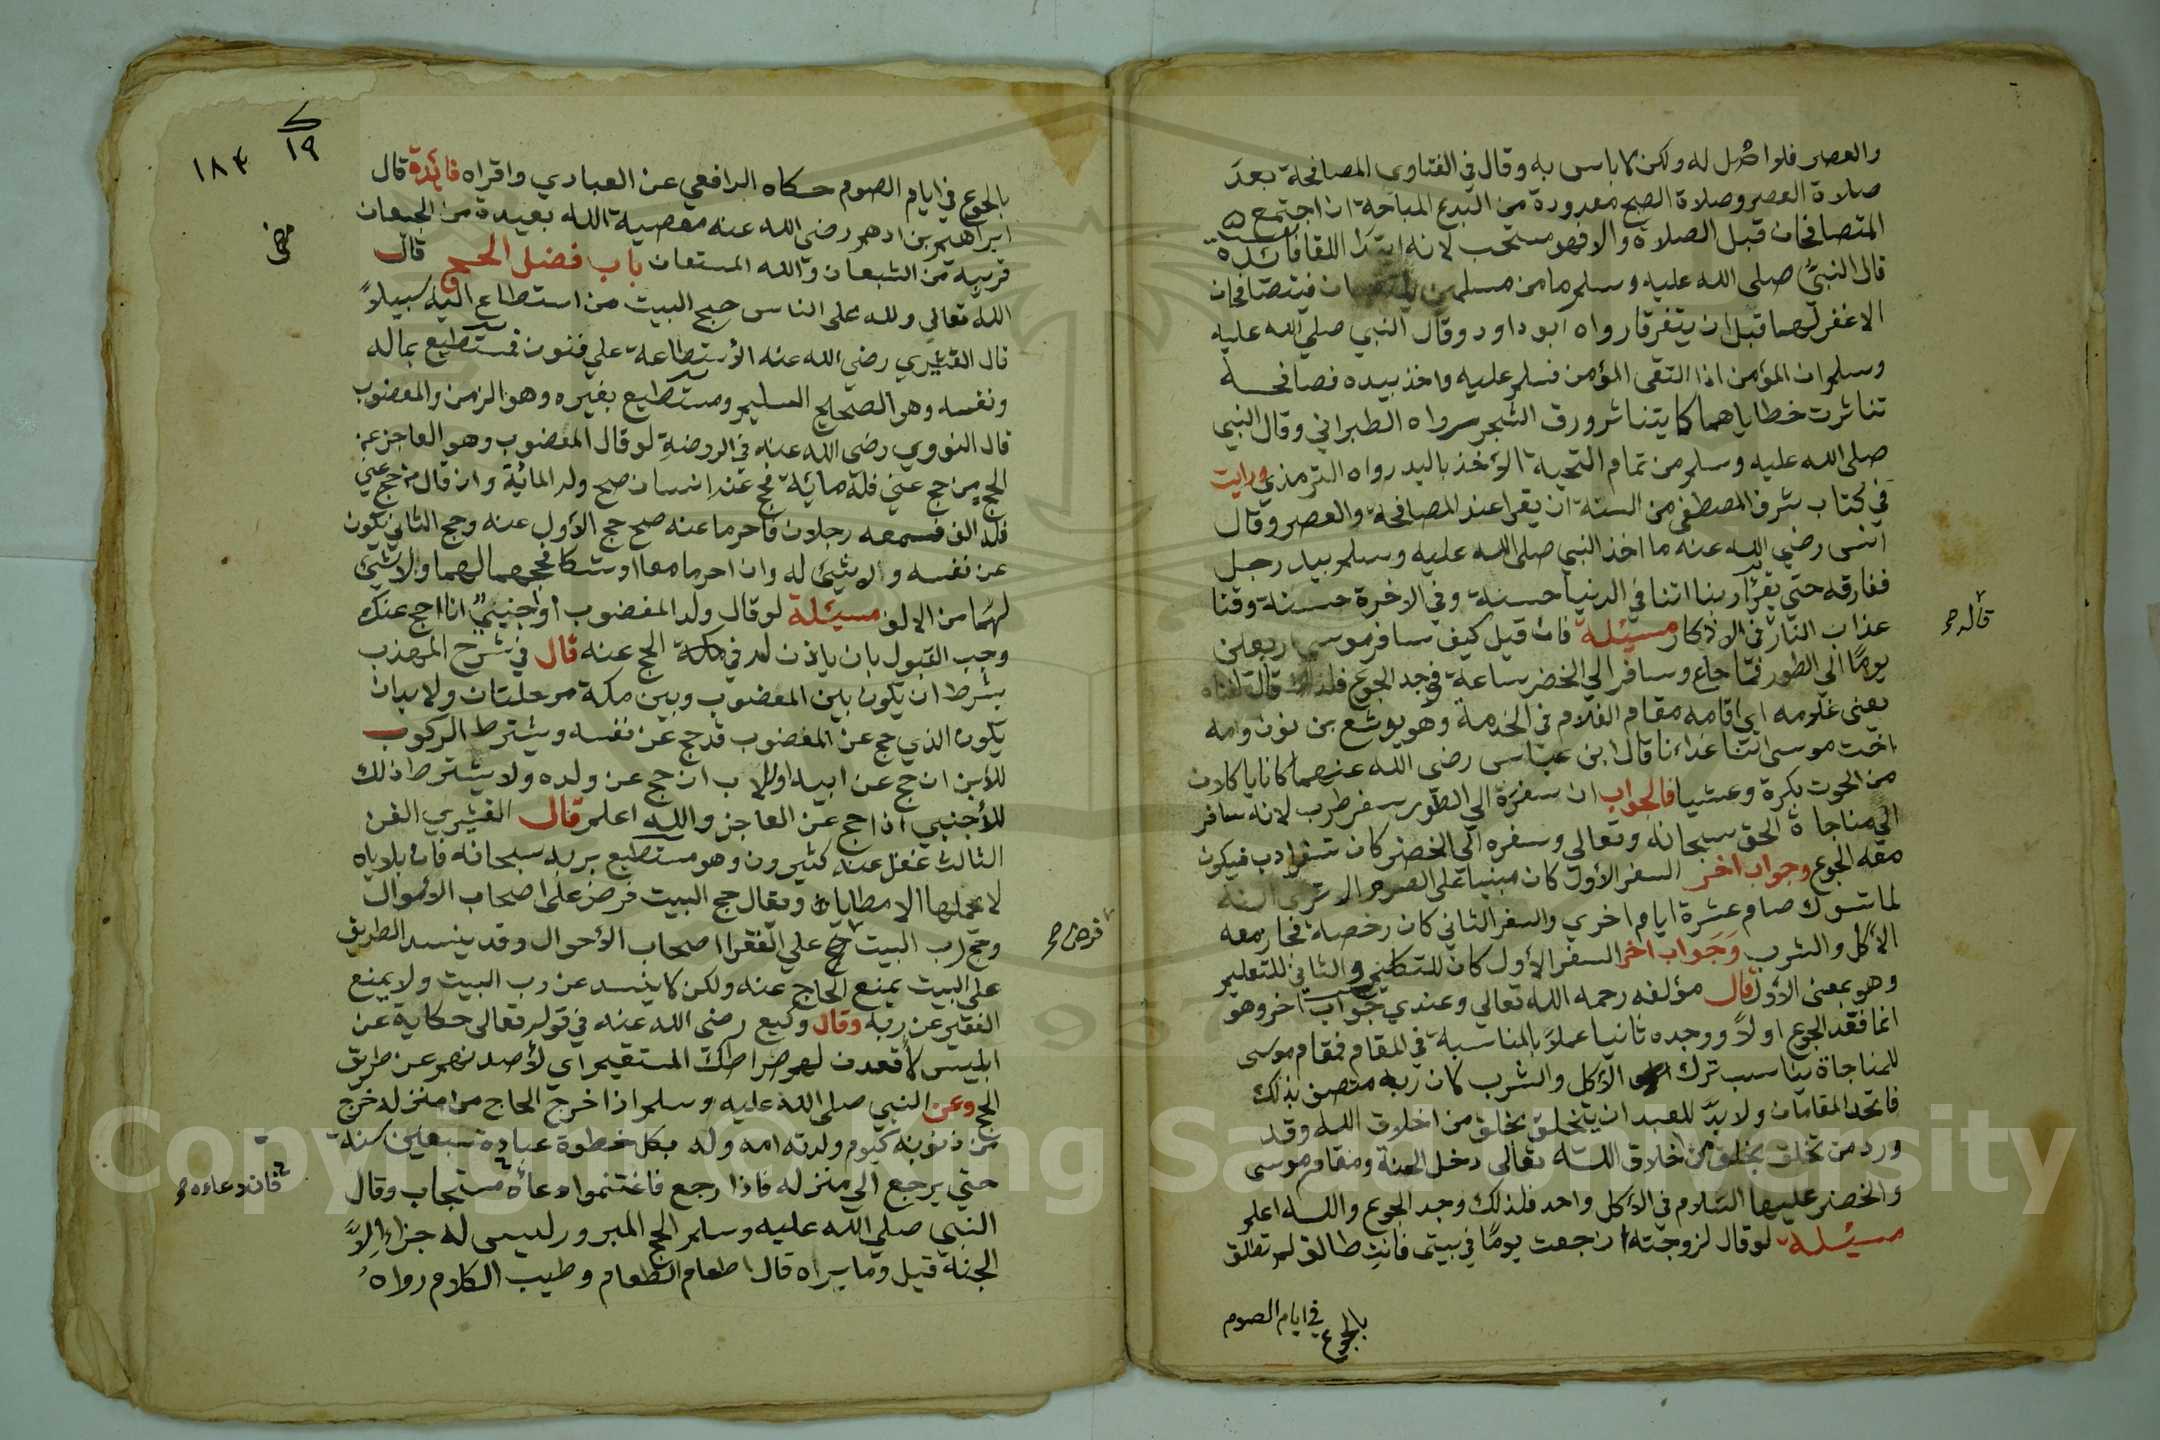 والعصر فلا اصل له ولكن لا باس به وقال في الفتاوى المصافحة بعد
صلاة العصر وصلاة الصبح معدودة من البدع المباحة ان اجتمع
المتصافحان قبل الصلاة والا فهو مستحب لانه ابتدا اللقا فائدة
قال النبي صلى الله عليه وسلم ما من مسلمين يلتقيان فيتصافحان
الا غفر لهما قبل ان يتفرقا رواه ابو داود وقال النبي صلي الله عليه
وسلم ان المؤمن اذا التقى المؤمن فسلم عليه واخذ بيده فصافحه
تناثرت خطاياهما كما يتناثر ورق الشجر رواه الطبراني وقال النبي
صلى الله عليه وسلم من تمام التحية الأخذ باليد رواه الترمذي ورايت
في كتاب شرف المصطفى من السنة ان يقرا عند المصافحة والعصر وقال
انس رضي الله عنه ما اخذ النبي صلى الله عليه وسلم بيد رجل
ففارقه حتي يقرأ ربنا اتنا في الدنيا حسنة وفي الاخرة حسنة وقنا
عذاب النار في الاذكار مسئلة فان قيل كيف سافر موسى اربعين
يومًا الي الطور فما جاع وسافر الي الخضر ساعة فوجد الجوع فلذلك قال لفتاه
قاله صح
يعني غلامه اي اقامه مقام الغلام في الخدمة وهو يوشع بن نون وامه
اخت موسى اتنا غداءنا قال ابن عباس رضى الله عنهما كانا ياكلان
من الحوت بكرة وعشيا فالجواب ان سفره الي الطور سفر طرب لانه سافر
الي مناجاة الحق سبحانه وتعالى وسفره الي الخضر كان سفر ادب فيكون
معه الجوع وجواب اخر السفر الأول كان مبنيا على الصوم الا ترى انه
لما تسوك صام عشرة ايام اخري والسفر الثاني كان رخصة فجاز معه
الأكل والشرب وجواب اخر السفر الأول كان للتكليم والثاني للتعليم
وهو بمعنى الأول قال مؤلفه رحمه الله تعالى وعندي جواب اخر وهو
انما فقد الجوع اولاً ووجده ثانيا عملا بالمناسبة في المقام فمقام موسى
للمناجاة يناسب ترك الأكل والشرب كان ربه متصف بذلك
فاتحد المقامان ولا بد للعبد ان يتخلق بخلق من اخلاق الله وقد
ورد من تخلق بخلق من اخلاق الله تعالى دخل الجنة ومقام موسى
والخضر عليهما السلام في الأكل واحد فلذلك وجد الجوع والله اعلم
مسئلة لو قال لزوجته ان جعت يومًا في بيتي فانت طالق لم تطلق
بالجوع في ايام الصوم
ك
١٩
١٨٤
بالجوع في ايام الصوم حكاه الرافعي عن العبادي واقراه فائدة قال
ابراهيم بن ادهم رضى الله عنه معصية الله بعيدة من الجيعان
قريبة من الشبعان والله المستعان باب فضل الحج قال
الله تعالى ولله على الناس حج البيت من استطاع اليه سبيلاً
قال القشيري رضي الله عنه الأستطاعة علي فنون فمستطيع بماله
ونفسه وهو الصحيح السليم ومستطيع بغيره وهو الزمن والمعضوب
قال النووي رضى الله عنه في الروضة لو قال المعضوب وهو العاجز عن
الحج من حج عني فله مائة فحج عنه انسان صح وله المائة وان قال من حج عني
فله الف فسمعه رجلان فاحرما عنه صح حج الأول عنه وحج الثاني يكون
عن نفسه ولا شيئ له وان احرما معا او شكا فحجهما لهما ولا شيئ
لهما من الالف مسئلة لو قال ولد المعضوب أو أجنبي انا احج عنك
وجب القبول بان ياذن له في مكة الحج عنه قال في شرح المهذب
بشرط ان يكون بين المعضوب وبين مكة مرحلتان ولا بد ان
يكون الذي حج عن المعضوب قد حج عن نفسه ويشترط الركوب
للأبن ان حج عن ابيه او للاب ان حج عن ولده ولا يشترط ذلك
للأجنبي اذا حج عن العاجز والله اعلم قال القشيري الفن
الثالث غفل عنه كثيرون وهو مستطيع بربه سبحانه فان بلاياه
لا يحملها الا مطاياه ويقال حج البيت فرض على اصحاب الأموال
وحج رب البيت علي الفقرا اصحاب الأحوال وقد ينسد الطريق
فرض صح
علي البيت يمنع الحاج عنه ولكن لا ينسد عن رب البيت ولا يمنع
الفقير عن ربه وقال وكيع رضى الله عنه في قوله تعالى حكاية عن
ابليس لأقعدن لهم صراطك المستقيم اي لأصدنهم عن طريق
الحج وعن النبي صلى الله عليه وسلم اذا خرج الحاج من منزله خرج
من ذنوبه كيوم ولدته امه وله بكل خطوة عبادة سبعين سنة
حتي يرجع الي منزله فاذا رجع فاغتنموا دعاه مستجاب وقال
فان دعاءه صح
النبي صلى الله عليه وسلم الحج المبرور ليس له جزاء إلاَّ
الجنة قيل وما براه قال اطعام الطعام وطيب الكلام رواه